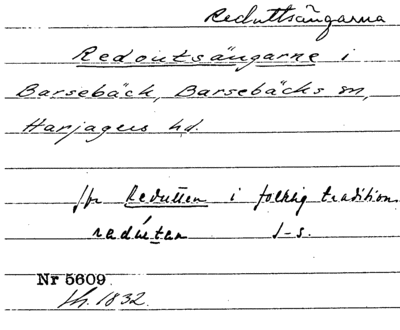 Reduttsängarna
Redoutsängarne i
Barsebäck, Barsebäcks sn,
Harjagers hd.
Jfr Redutten i folklig tradition.
radútan J-s.
Nr 5609
th. 1832.